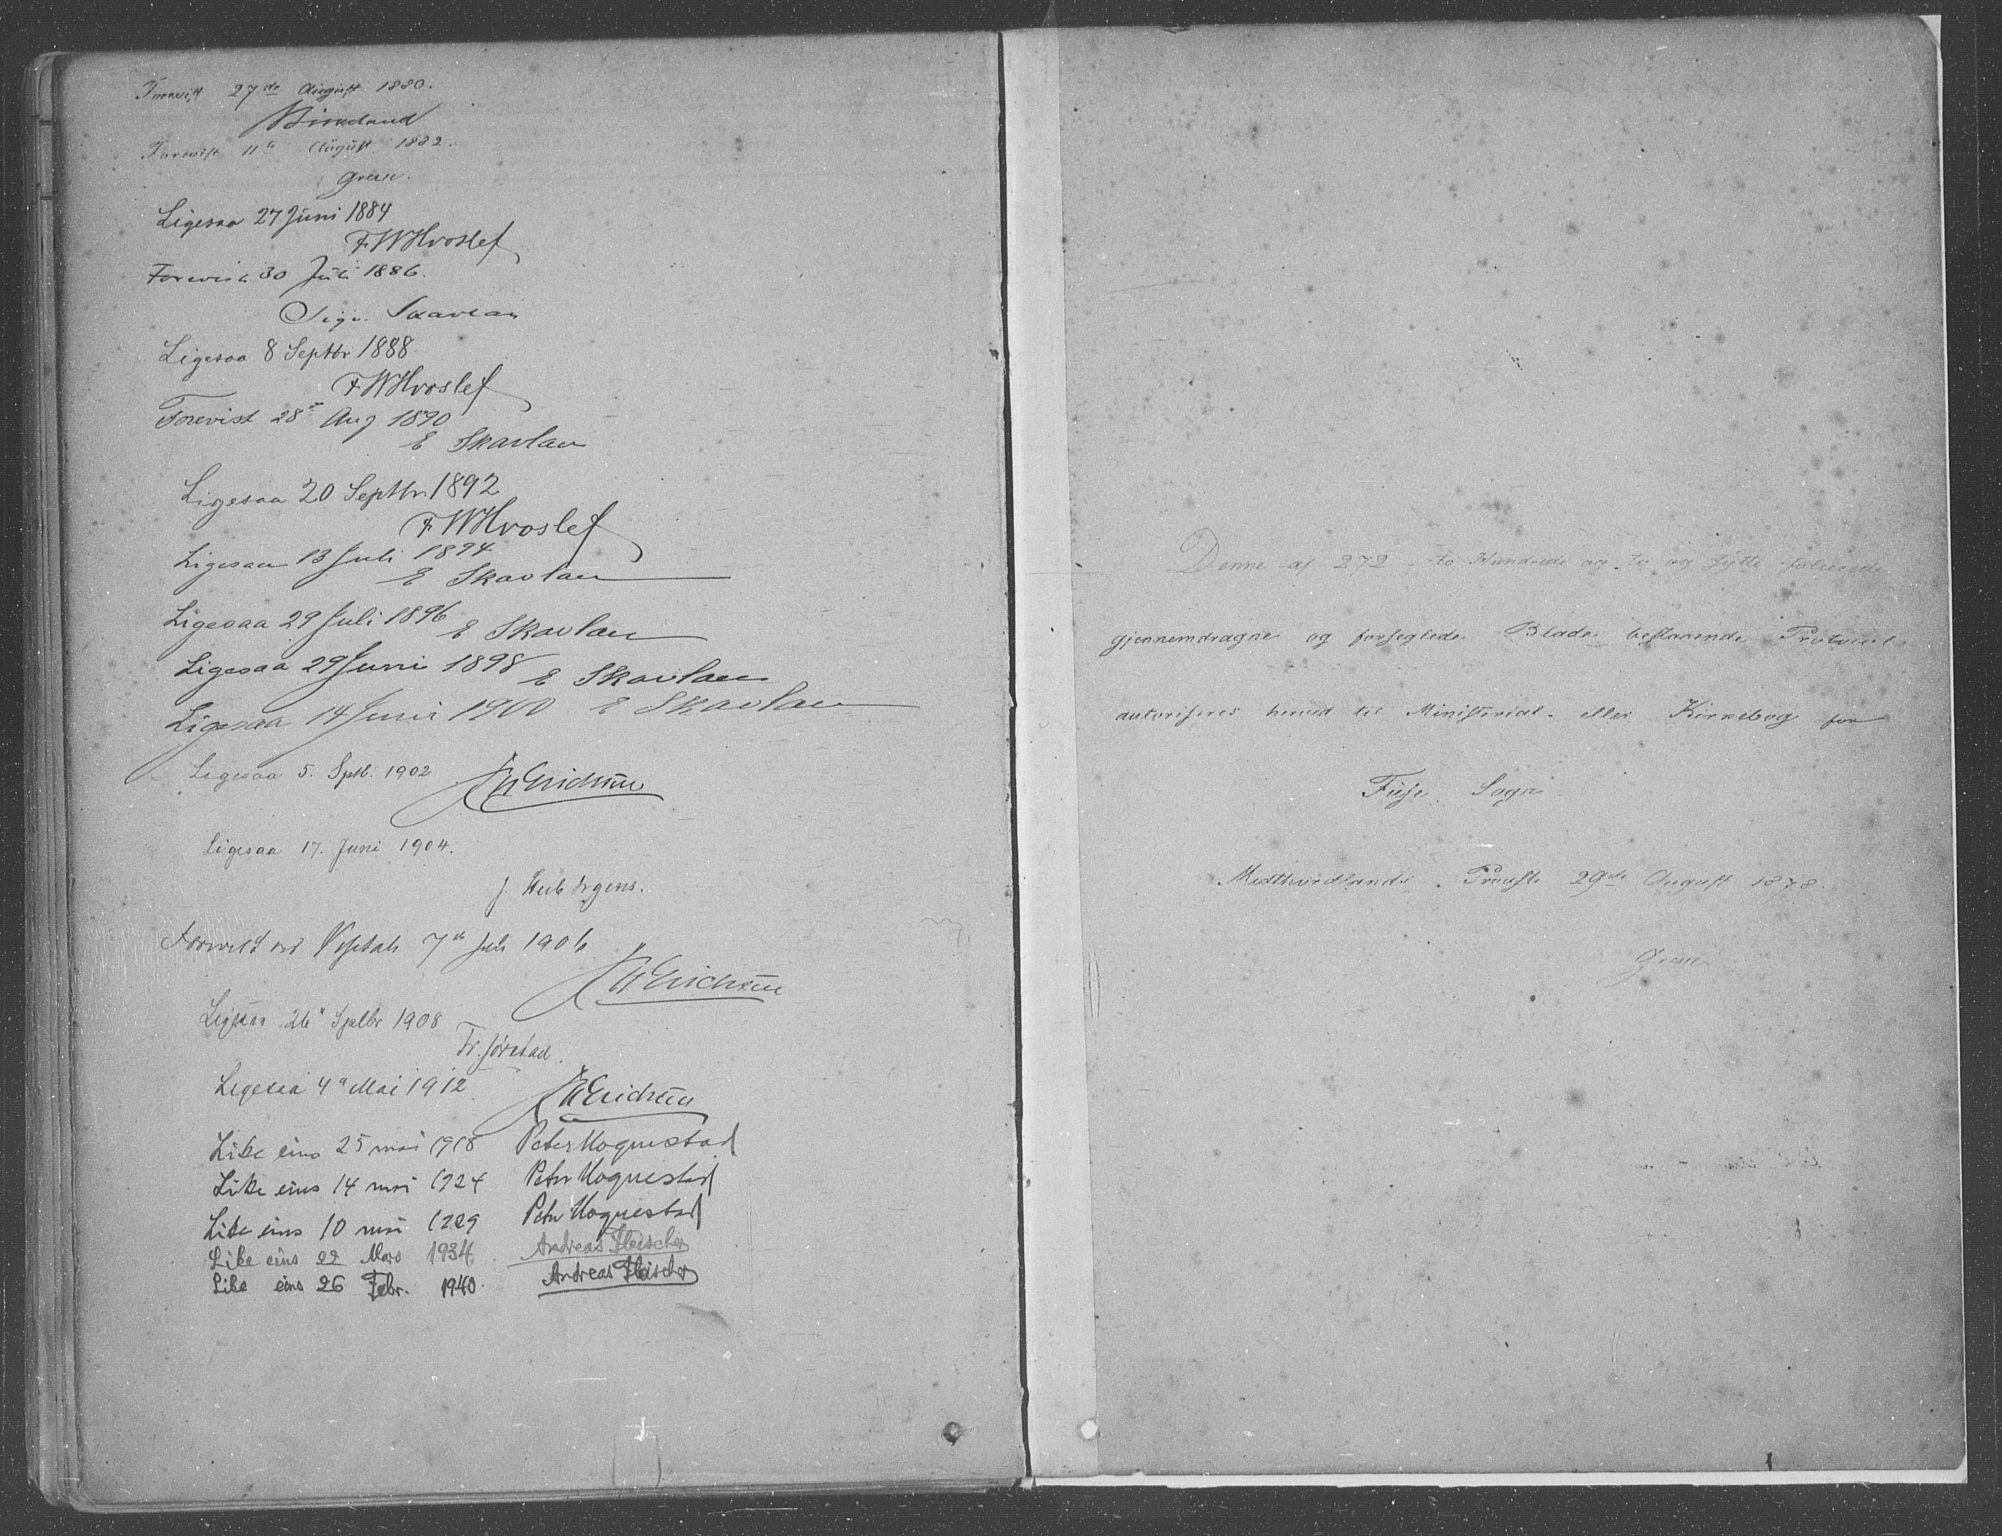 Forevist 27de August 1880.
Forevist 11te August 1882.
Grove.
Ligesaa 27 Juni 1884
F. W Hvoslef
Forevist 30 Juli 1886.
Sign. Skavlan
Ligesaa 8 Septbr 1888.
F. W Hvoslef
Forevist 28de Aug 1890
E Skavlan
Ligesaa 20 Septbr 1892
F. W Hvoslef
Ligesaa 13 Juli 1894
E Skavlan
Ligesaa 29 Juli 1896 E Skavlan
Ligesaa 29 Juni 1898 E Skavlan
Ligesaa 14 Juni 1900 E Skavlan
Ligesaa 5. Sptb. 1902 Erichsen
Ligesaa 17. Juni 1904.
J.
Forevist ved Visitats 7de Juli 1906
Erichsen
Ligesaa 26" Septbr 1908
Fr. Jørstad.
Ligesaa 4" Mai 1912 Erichsen
Like eins 25 mai 1918 Peter Hognestad
Like eins 14 mai 1924 Peter Hognestad
Like eins 10 mai 1929 Peter Hognestad
Like eins 22 Mars 1934 Andreas Fleischer
Like eins 26 Febr. 1940. Andreas Fleischer
Denne af 272 - to Hundrede og to og sytti - folierede
gjennemdragne og forseglede Blade bestaaende Protocol
autoriseres herved til Ministerial- eller Kirkebog for
Fuse Sogn.
Midthordlands Provsti 29de August 1878.
Grove